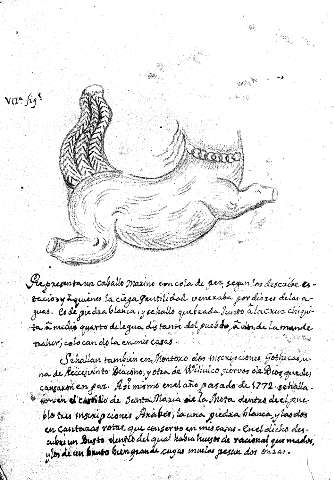 VII.ª fig.ª
Representa un Caballo Marino con cola de pez, segun los describe Es-
tacio y á quienes la ciega Gentilidad veneraba por dioses de las a-
guas. Es de piedra blanca, y se halló quebrada junto á la Cruz chiqui-
ta á medio quarto de legua distante del pueblo,
traher, i colocan de la en mis casas.
Se hallan tambien en Montoro dos inscripciones Gothicas, u-
na de Diacono, y otra de siervos de Dios que des-
cansaron en paz. Asi mismo en el año pasado de 1772 se halla-
ron en el Castillo de Santa Maria de la Mota dentro del pue-
blo tres inscripciones Arabes, la una piedra blanca, y las dos
en cantazas rotas, que conservo en mis casas. En el dicho des-
cubrí un Busto dentro del qual habia huesos de racional quemados,
y los de un bruto bien grande cuyas muelas pesan dos onzas.